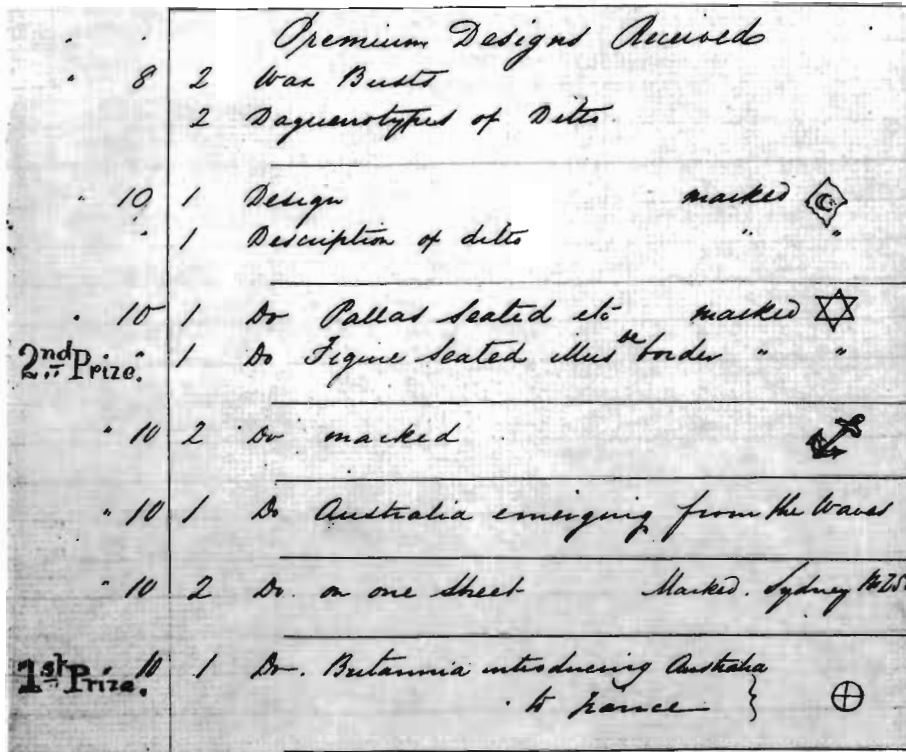 " " Premium Designs Received
" 8 2 Wax Busts
2 Daguenotypes of Ditto.
" 10 1 Design marked
" 1 Description of ditto " "
" 10 1 Do Pallas Seated etc marked
2nd Prize. " 1 Do Figure Seated border " "
" 10 2 Do marked
" 10 1 Do Australia emerging from the Waves
" 10 2 Do. on one Sheet Marked. Sydney
1st Prize. 10 1 Do. Britannia introducing Australia
to France }